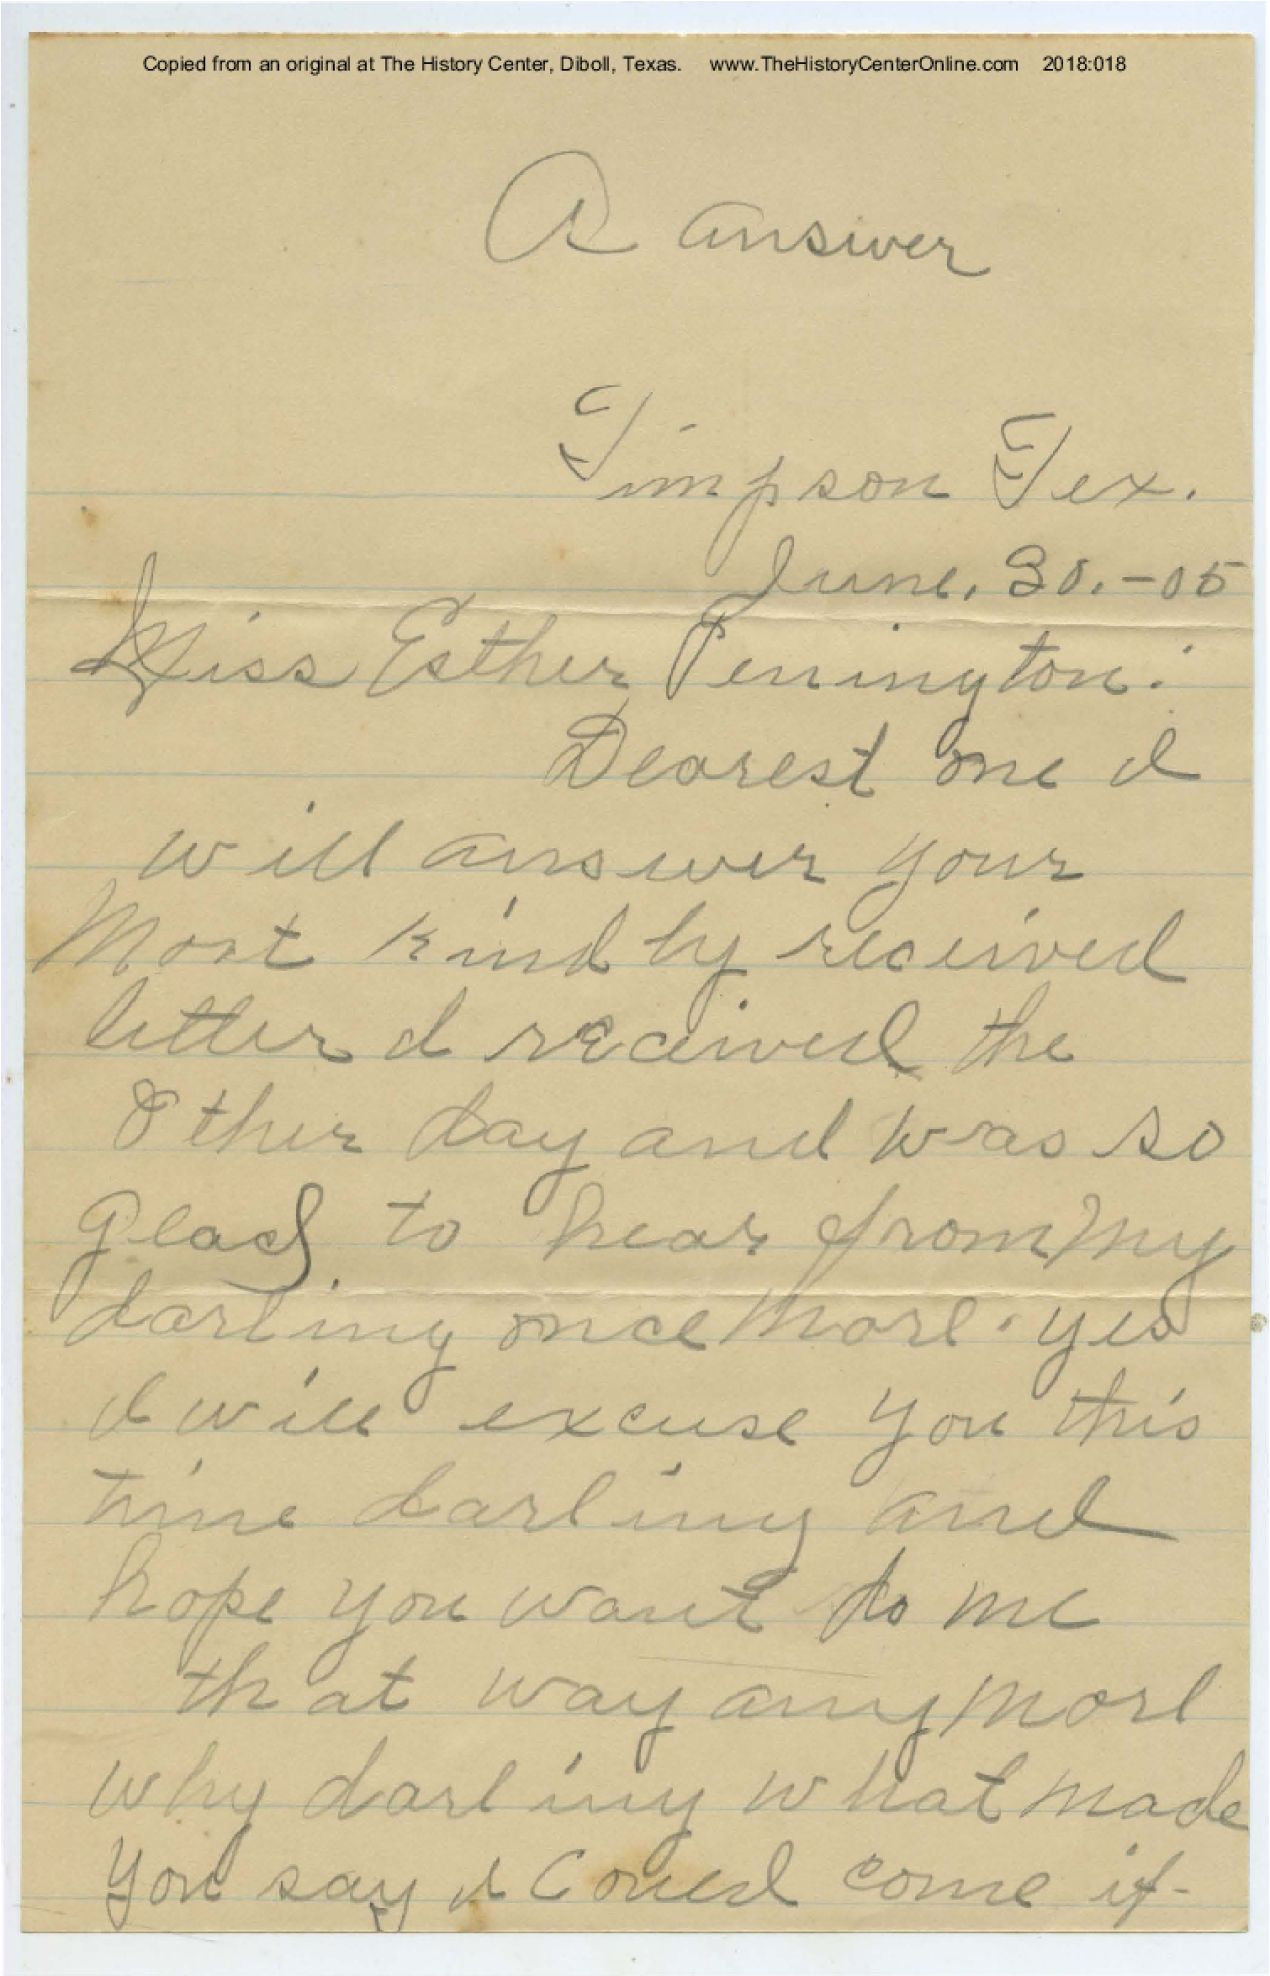 Copied from an original at The History Center, Diboll, Texas. www.TheHistoryCenterOnline.com 2018:018
A answer
Timpson Tex.
June, 30.-05
Miss Esther Penington:
Dearest one I
will answer your
Most kindly received
letter I received the
Other day and was so
Glad to hear from My
darling once More. yes
I will excuse you this
time darling and
hope you wont do me
that way any More
why darling what made
you say I Could come if